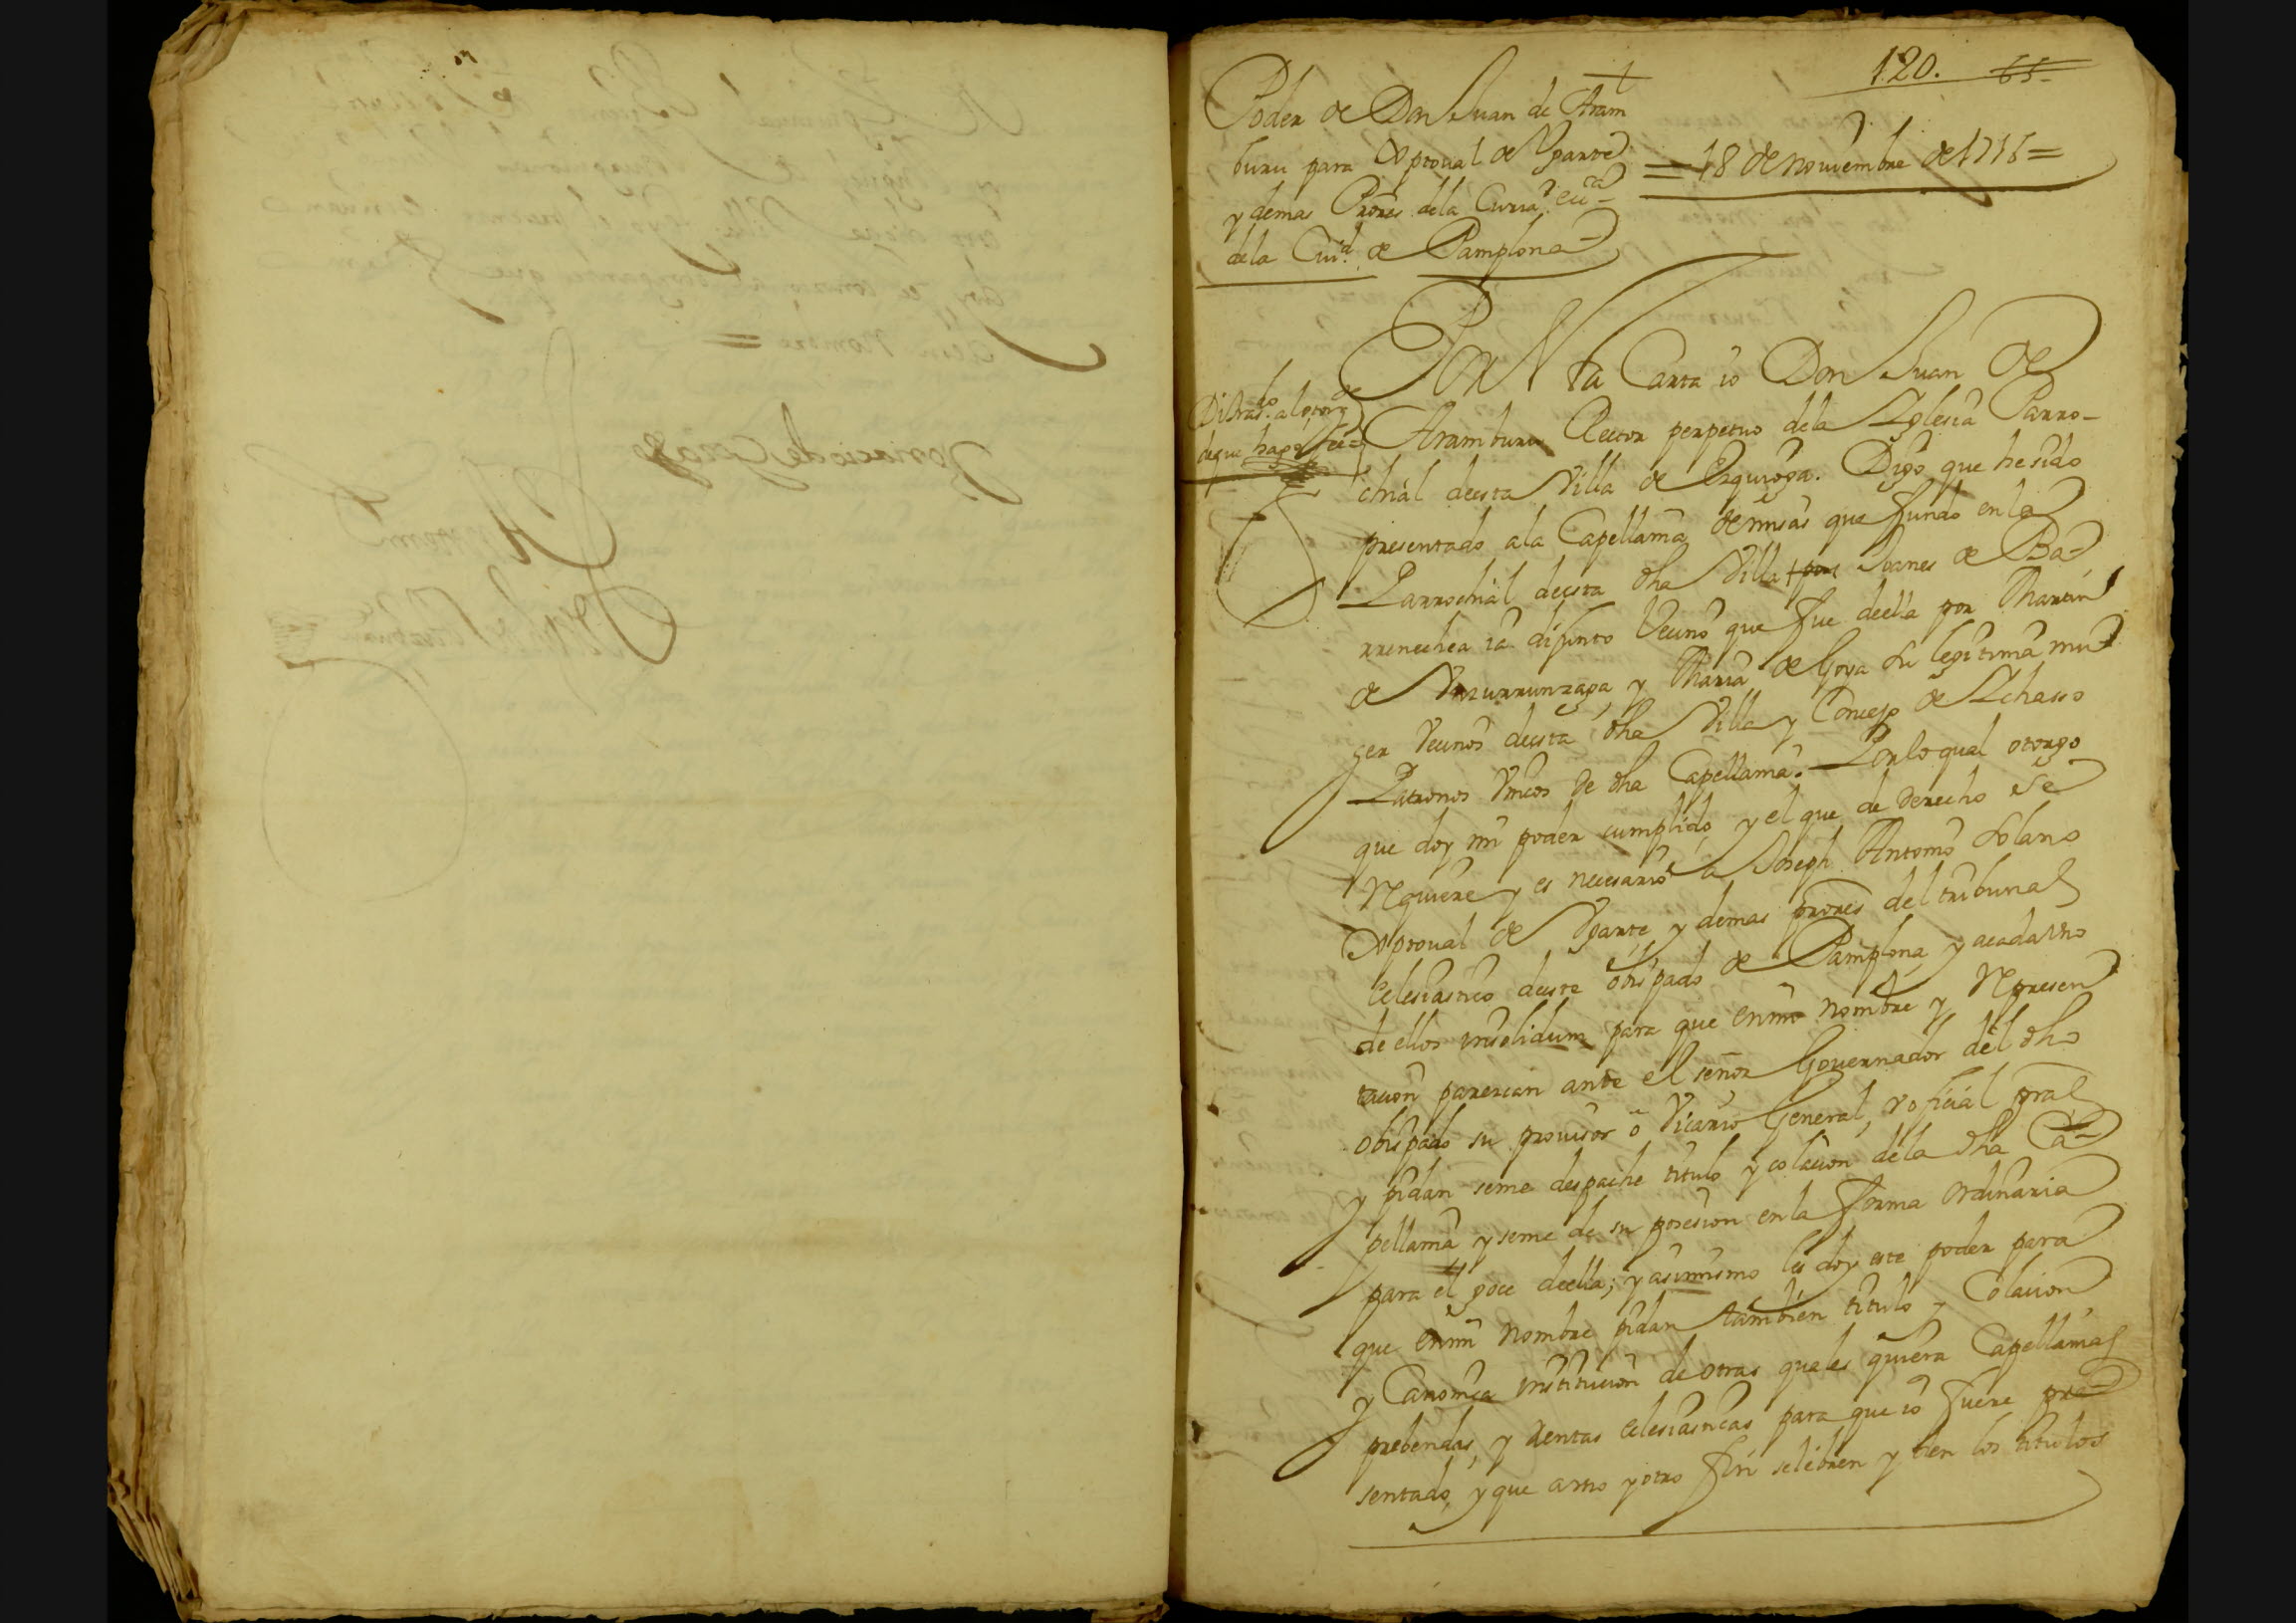 120. 65
Poder de Don Juan de Aram
buru para Xptoual de Vgarte
y demas Prores. dela Curia ecca.
dela Ciud. de Pamplona
= 18 de nouiembre de 1716 =
Por esta Carta io Don Juan de
Aramburu Rector perpetuo dela Yglesia Parro-
chial deesta Villa de Ezquioga. Digo que he sido
presentado ala Capellania de misas que fundo enla
Parrochial deesta dha Villa Joanes de Ba-
rrenechea ia difunto Vecino que fue deella por Martin
de Vnzurrunzaga, y Maria de Goya su legitima mu-
ger Vecinos deesta dha Villa y Concejo de Ychasso
Patronos Vnicos de dha Capellania. Por lo qual otorgo
que doy mi poder cumplido, y el que de derecho se
Requiere y es necesario a Joseph Antonio Solano
Xptoual de Vgarte, y demas prores del tribunal
Eclesiastico deeste obispado de Pamplona, y acada vno
de ellos insolidum para que enmi nombre y Represen
tacion parezcan ante el señor Gouernador del dho
Obispado su prouisor o Vicario General, y oficial pral
y pidan seme despache titulo y colacion dela dha Ca-
pellania y seme de su posesion enla forma ordinaria
para el goce deella; y asimismo les doy este poder para
que enmi nombre pidan tambien titulo y Colacion
y Canonica institucion de otras quales quiera Capellanias
prebendas, y Rentas eclesiasticas para que io fuere pre-
sentado, y que avno y otro fin selibren y den los titulos